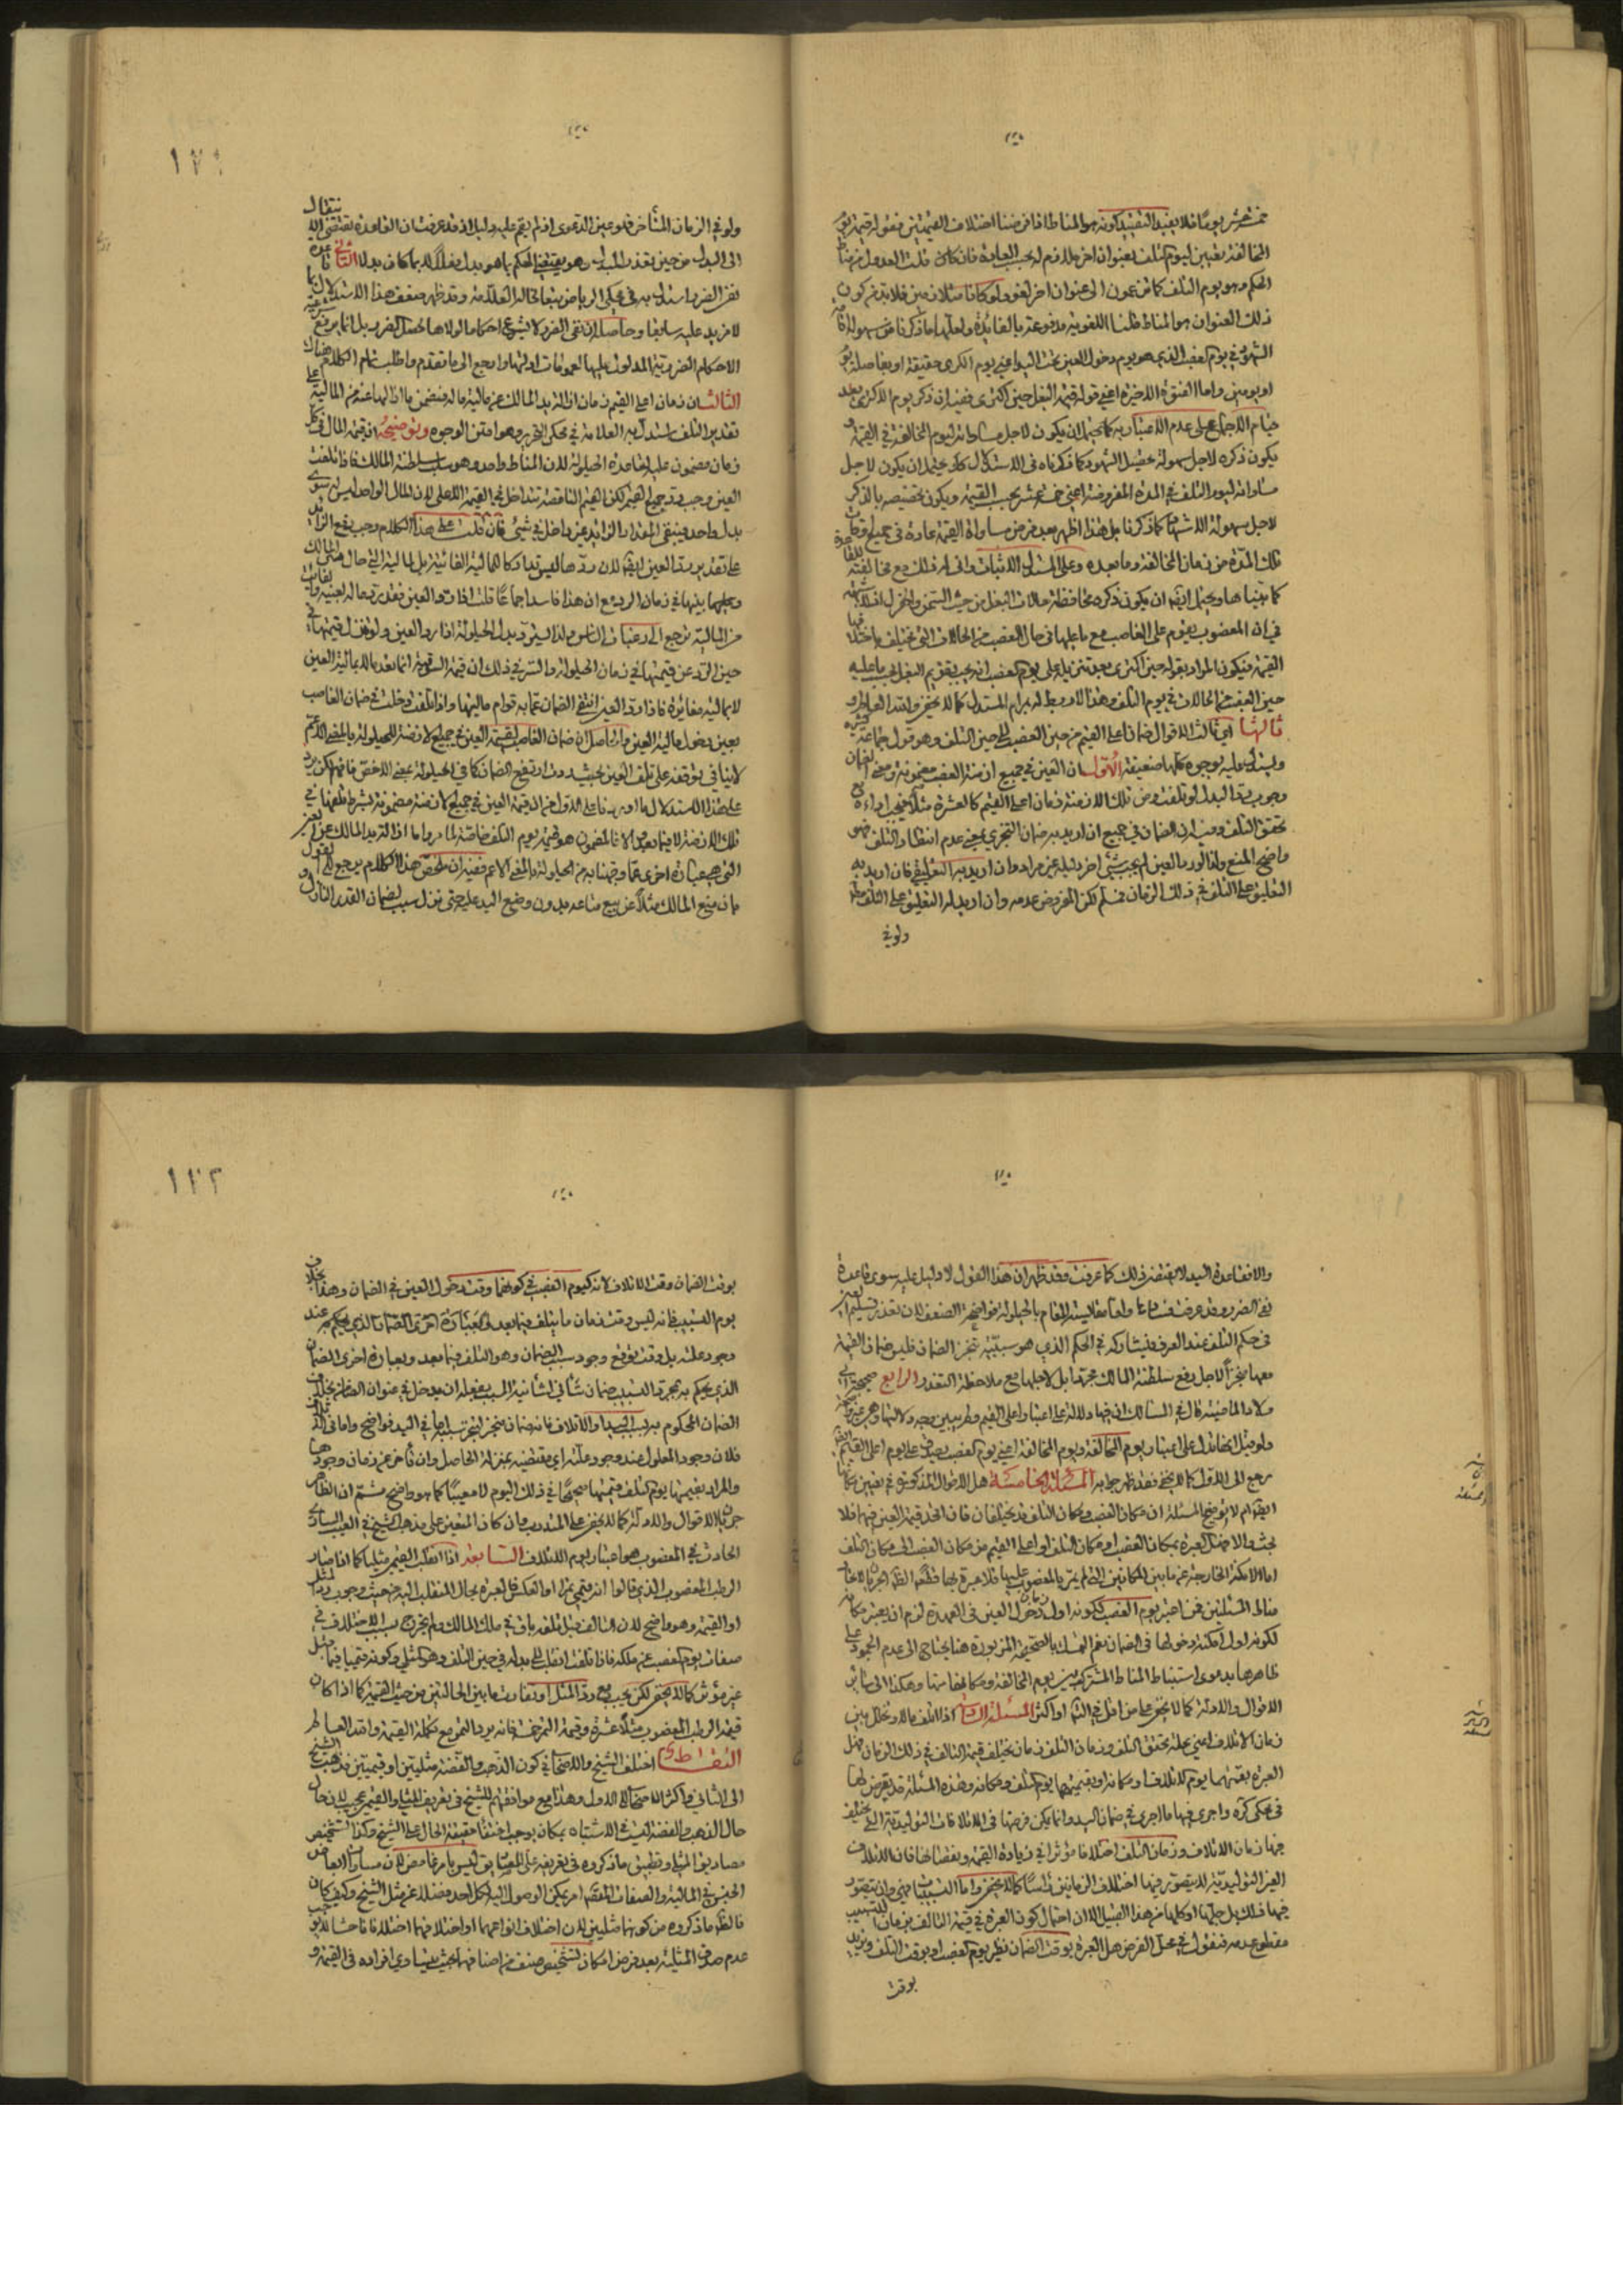 خمسة عشر يوما فلا يفيد التقييد كونه هو المناط فافرضنا اختلاف القيمتين فقوله قيمة يوم
المخالفة تعيين ليوم التلف بعنوان اخر ملازم له بحسب العادة فان قلت العدول من مناط
الحكم وهو يوم التلف كما تزعمون الى عنوان اخر لغو ولو كانا متلازمين فلا بد من كون
ذلك العنوان هو المناط قلنا اللغوية مدفوعة بالفائدة ولعلها ما ذكرنا من سهولة اقامة
الشهود في يوم الغصب الذي هو يوم دخول العين تحت اليد اعني يوم الكرى حقيقة او بفاصلة يوم
او يومين واما الفقرة الاخيرة اعني قوله قيمة البغل حين اكترى ففيه ان ذكر يوم الاكترى بعد
قيام الاجماع على عدم الاعتبار به كما يحتمل ان يكون لاجل مساواته ليوم المخالفة في القيمة و
يكون ذكره لاجل سهولة تحصيل الشهود كما ذكرناه في الاستدلال كذا يحتمل ان يكون لاجل
مساواته ليوم التلف في المدة المفروضة اعني خمسة عشر بحسب القيمة ويكون تخصيصه بالذكر
لاجل سهولة الاشهاد كما ذكرنا بل هذا اظهر بعد فرض مساواة القيمة عادة في جميع اوقات
تلك المدة من زمان المخالفة وما بعده وعلى المستدل الاثبات وانى له ذلك مع مخالفته للقاعدة
كما بيناها ويحتمل ايضا ان يكون ذكره محافظة حالات البغل من حيث السمن والهزل اذ لا شبهة
في ان المغصوب يقوم على الغاصب مع ما عليها في حال الغصب من الحالات التي تختلف باختلافها
القيمة فيكون المراد بقوله حين اكترى بعد تنزيله على يوم الغصب انه يجب تقويم البغل بحسب ما عليه
حين الغصب من الحالات في يوم التلف وهذا لا ربط له بمرام المستدل كما لا يخفى والله العالم و
ثالثها اي ثالث الاقوال ضمان اعلى القيم من حين الغصب الى حين التلف وهو قول جماعة كثيرة
ويستدل عليه بوجوه كلها ضعيفة الاول ان العين في جميع ازمنة الغصب مضمونة ومعنى الضمان
وجوب رد البدل لو تلفت ومن تلك الازمنة زمان اعلى القيم كالعشرة مثلا فيجب اداءه مع
تحقق التلف وفيه ان الضمان في جميع ان اريد به ضمان التنجزي يعني عدم انتظار التلف فهو
واضح المنع ولذا لو رد العين لم يجب شيء اخر بل انه غير مراد وان اريد به التعليقي فان اريد به
التعليق على التلف في ذلك الزمان فمسلم لكن المفروض عدمه وان اريد به التعليق على التلف مط
ولو في
١٢١
ولو في الزمان المتأخر فهو عين الدعوى اذ لم يقم عليه دليل اذ قد عرفت ان القاعدة تقتضي الانتقال
الى البدل من حين تعذر المبدل وهو يقتضي الحكم بما هو بدل فعلا لا بما كان بدلا الثاني قاعدة
نفي الضرر استدل به في محكي الرياض تبعا لخاله العلامة وقد ظهر ضعف هذا الاستدلال بما
لا مزيد عليه سابقا وحاصله ان نفي الضرر لا يشرع احكاما لولاها لحصل الضرر بل انما يرفع
الاحكام الضررية المدلول عليها بعمومات ادلتها وارجع الى ما تقدم واطلب تمام الكلام هناك
الثالث ان زمان اعلى القيم زمان ازالة يد المالك عن مالية ماله فيضمن بازالتها عنه من المالية على
تقدير التلف استدل به العلامة في محكي التحرير وهو امتن الوجوه وتوضيحه ان قيمة المال في كل
زمان مضمون عليه بقاعدة الحيلولة لان المناط واحد وهو سلب سلطنة المالك فاذا تلفت
العين وجب رد جميع القيم لكن القيم الناقصة تتداخل في القيمة الاعلى لان المال الواحد ليس له سوى
بدل واحد ويبقى المقدار الزائد غير داخل في شيء فان قلت على هذا الكلام وجب دفع الزائد
على تقدير رد العين ايضا لان ردها ليس تداركا للمالية الفائتة بل لمالية التي حال
من المالية يرجع الى رغبات الناس ولذا يسترد بدل الحيلولة اذا رد العين ولو نزل قيمتها في
حين الرد عن قيمتها في زمان الحيلولة والسر في ذلك ان قيمة السوقية انما تعد مالا بمالية العين
لا بمالية مغايرة فاذا رد العين انتفى الضمان عما به قوام ماليتها واذا تلفت دخلت في ضمان الغاصب
على هذا الاستدلال ما اوردنا على الاول من ان قيمة العين في جميع الازمنة مضمونة بشرط تلفها في
تلك الازمنة لا فيما بعد والا فالمضمون هو قيمة يوم التلف خاصة لما مر واما ازالة يد المالك عن العين
التي هي عبارة اخرى عما وجهنا به من الحيلولة بالمعنى الاعم ففيه ان ملخص هذا الكلام يرجع الى القول
بان منع المالك مثلا عن بيع متاعه بدون وضع اليد عليه حتى نزل سبب لضمان القدر النازل و
والا فقاعدة اليد لا تقتضي ذلك كما عرفت وقد ظهر ان هذا القول لا دليل عليه سوى قاعدة
نفي الضرر وقد عرفت فسادها واما مقايسة المقام بالحيلولة فواضحة الضعف لان تعذر تسليم العين
في حكم التلف عند العرف فيشاركه في الحكم الذي هو سببية تنجز الضمان فليس ضمان القيمة
معها منجزا لاجل دفع سلطنة المالك مجردا بل لاجلها مع ملاحظة التعذر الرابع صحيحة ابي
ولاد الماضية قال في المسالك ان فيها دلالة على اعتبار اعلى القيم ولم يبين وجه دلالتها وهي غير واضحة
ولو قيل انها تدل على اعتبار يوم المخالفة ويوم المخالفة اعني يوم الغصب يصدق على يوم اعلى القيم ايضا
رجع الى الاول كما لا يخفى فقد ظهر جوابه المسئلة الخامسة هل الاقوال المذكورة في تعيين مكانها
ايضا ام لا توضيح المسئلة ان مكان الغصب ومكان التلف قد يختلفان فان اتحد قيمة العين فيهما فلا
بحث والا فهل العبرة بمكان الغصب او مكان التلف او اعلى القيم من مكان الغصب الى مكان التلف
اما الامكنة الخارجة عن ما بين المكانين التي لم يمر بالمغصوب عليها فلا عبرة بها قطعا
فمن اعتبر يوم الغصب لكونه اول زمان دخول العين في العهدة لزم ان يعتبر مكانه
لكونه اول امكنة دخولها في الضمان نعم التمسك بالصحيحة المزبورة هنا يحتاج الى عدم الجمود على
ظاهرها بدعوى استنباط المناط المشترك بين يوم المخالفة ومكانها منها وهكذا الى سائر
الاقوال والادلة كما لا يخفى على من تامل في التمام او اكثر المسئلة السادسة اذا اتلف مالا وتخلل بين
زمان الاتلاف اعني علة تحقق التلف وزمان التلف زمان يختلف قيمة التالف في ذلك الزمان فهل
العبرة بقيمتها يوم الاتلاف او مكانه او بقيمتها يوم التلف ومكانه وهذه المسئلة قد تعرض لها
في محكي كره واجرى فيها ما اجرى في ضمان اليد وانما يمكن فرضها في الاتلافات التوليدية التي تختلف
فيها زمان الاتلاف وزمان التلف اختلافا مؤثرا في زيادة القيمة ونقصانها فان الاتلاف
الغير التوليدية لا يتصور فيها اختلاف الزمانين راسا كما لا يخفى واما التسبيبات فهي وان يتصور
فيها ذلك بل جلها او كلها من هذا القبيل الا ان احتمال كون العبرة في قيمة التالف بزمان التسبيب
مقطوع عدمه فنقول في محل الفرض هل العبرة بوقت الضمان نظير يوم الغصب او بوقت التلف ونريد
بوقت
١٢٢
بوقت الضمان وقت الاتلاف لانه كيوم الغصب في كونهما وقت دخول العين في الضمان وهذا بخلاف
يوم التسبيب فانه ليس وقت ضمان ما يتلف فيما بعد وبعبارة اخرى الضمان الذي يحكم به عند
وجود علته بل وقت توقع وجود سبب الضمان وهو التلف فيما بعد وبعبارة اخرى الضمان
الذي يحكم به بمجرد التسبيب ضمان شأني
الضمان المحكوم به بسبب اليد او الاتلاف فانه ضمان منجز
فلان وجود المعلول عند وجود علته اي مقتضيه بمنزلة الحاصل وان تأخر عنه زمان وجودها
والمراد بقيمتها يوم التلف قيمتها صحيحا في ذلك اليوم لا معيبا كما هو واضح ثم ان الظاهر
جريان الاقوال والادلة كما لا يخفى على المتدرب وان كان المتعين على مذهب الشيخ في العيب الساري
الحادث في المغصوب هو اعتبار يوم الاتلاف السابعة اذا انقلب القيمي مثليا كما اذا صار
الرطب المغصوب الذي قالوا انه قيمي تمرا او انعكس فالعبرة بحال المنقلب اليه من حيث وجوب رد المثل
او القيمة وهو واضح لان التالف قبل تلفه باق في ملك المالك ولم يخرج بسبب الاختلاف في
صفات يوم الغصب عن ملكه فاذا تلفت انقلب الى بدله في حين التلف وهو المثل وكونه قيميا فيما قبل
غير مؤثر كما لا يخفى لكن يجب مع رد المثل او تفاوت ما بين الحالتين من حيث القيمة كما اذا كان
قيمة الرطب المغصوب مثلا عشرة وقيمة التمر خمسة فانه يرد التمر مع تكملة القيمة والله العالم
التقاط اختلف الشيخ والاصحاب في كون الذهب والفضة مثليتين او قيميتين فذهب الشيخ
الى الثاني واكثر الاصحاب الى الاول وهذا مع موافقتهم للشيخ في تعريف المثلي والقيمي عجيب لان حال
حال الذهب والفضة ليست في الاشتباه بمكان يوجب اختفاء حقيقة الحال على الشيخ وكذا تشخيص
مصاديق المثلي وتطبيق ما ذكروه في تعريفه على المصاديق ليس بامر غامض لان مساواة ابعاض
الجنس في المالية والصفات المقصودة امر يمكن الوصول اليه لكل احد فضلا عن مثل الشيخ وكيف كان
فالظاهر ما ذكروه من كونهما مثليين لان اختلاف انواعهما او اختلافهما اختلافا فاحشا لا يوجب
عدم صدق المثلية بعد فرض امكان تشخيص صنف من اصنافهما بحيث يتساوى افراده في القيمة و